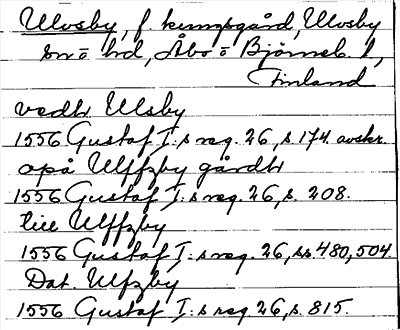 Ulvsby, f. kungsgård, Ulvsby
sn o hd, Åbo o Björneb. l,
Finland
vedh Ulsby
1556 Gustaf I:s reg. 26, s 174. avskr.
opå Ulffzby gårdh
1556 Gustaf I:s reg. 26, s. 208.
till Ulffzby
1556 Gustaf I:s reg. 26, ss. 480, 504.
Dat. Ulfzby
1556 Gustaf I:s reg 26, s. 815.